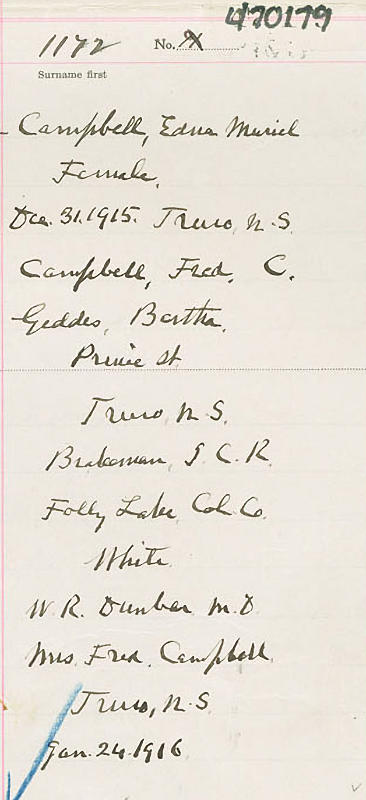 470179
1172 No. X
Surname first
Campbell, Edna Muriel
Female.
Dec. 31.1915. Truro, N.S.
Campbell, Fred, C.
Geddes, Bertha.
Prince St.
Truro, N.S.
Brakeman, I.C.R.
Folly Lake, Col. Co.
White
W.R. Dunbar M.D.
Mrs. Fred. Campbell.
Truro, N.S.
Jan. 24.1916